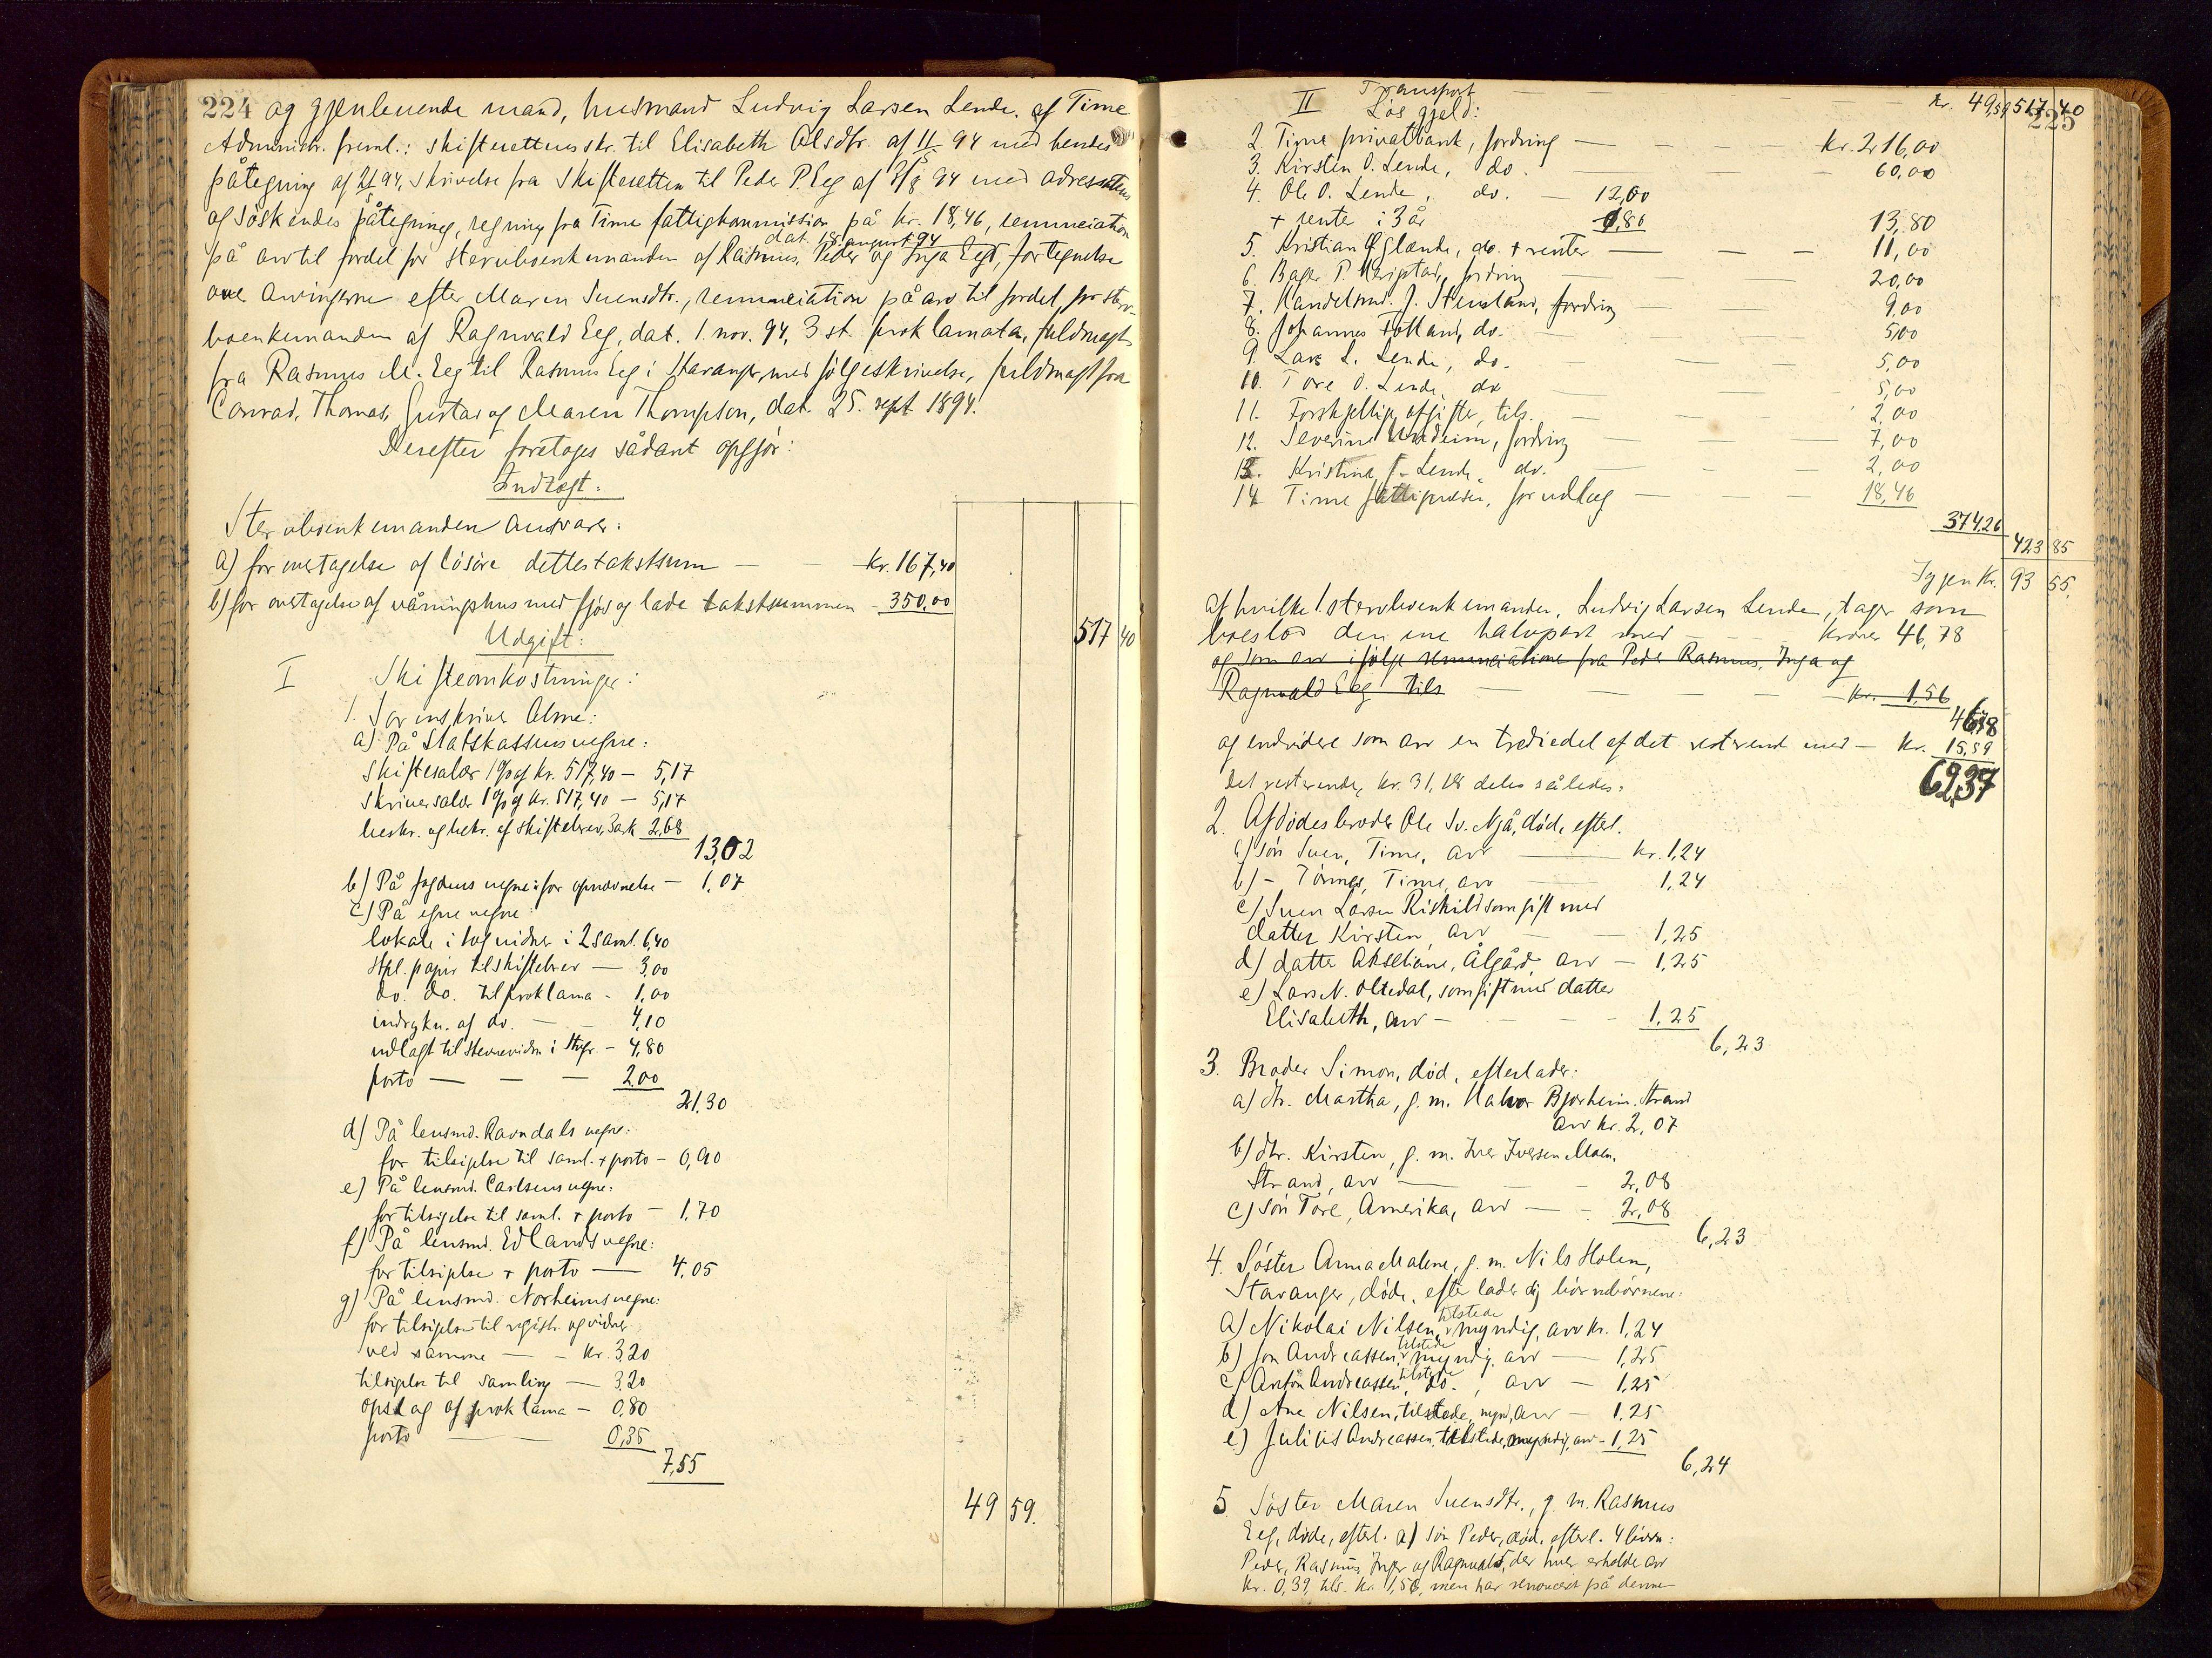 224 og gjenlevende mand, husmand Ludvig Larsen Lende, af Time
Administr. freml.: skifterettens skr. til Elisabeth Olsdtr. af 11/5 94 med hendes
påtegning af 21/5 94, skrivelse fra Skifteretten til Peder P. Eeg af 8/8 94 med adressatens
og söskendes påtegning, regning fra Time fattigkommission på kr. 18,46, renunciation
dat. 18 august 94
på arv til fordel for sterboenkemanden af Rasmus, Peder og Inga Eeg, fortegnelse
over arvingerne efter Maren Svensdtr., renunciation på arv til fordel for sterv-
boenkemanden af Ragnvald Eeg, dat. 1. nov. 94, 3 st. proklamata, fuldmagt
fra Rasmus M. Eeg til Rasmus Eeg i Stavanger, med fölgeskrivelse, fuldmagt fra
Conrad, Thomas, Gustav og Maren Thompson, dat. 25. sept 1894.
Derefter foretoges sådant opgjör:
Indtægt:
Stervboenkemanden ansvarer:
a) for overtagelse af lösöre dettes takstsum — — kr. 167,40
b) for overtagelse af våningshus med fjös og lade takstsummen 350,00
517 40
Udgift:
I Skifteomkostninger:
1. Sorenskriver Olme:
a) På Statskassens vegne:
Skiftesalær 1 % af kr. 517,40 — 5,17
Skriversalær 1 % af kr. 517,40 — 5,17
beskr. og bekr. af skiftebrev, 3 ark 2,68
13,02
b) På fogdens vegne: for opnævnelse — 1,07
c) På egne vegne:
lokale i og vidner i 2 saml. 6,40
stpl. papir til skiftebrev — 3,00
do. do. til proklama - 1,00
indrykn. af do. — 4,10
udlagt til stevnevidn. i Stvgr. — 4,80
porto — — — 2,00
21,30
d) På lensmd. Ravndals vegne:
for tilsigelse til saml. + porto — 0,90
e) På lensmd. Carlsens vegne:
for tilsigelse til saml. + porto — 1,70
f) På lensmd. Edlands vegne:
for tilsigelse + porto — 4,05
g) På lensmd. Norheims vegne:
for tilsigelse til registr. og vidner
ved samme — — kr. 3,20
tilsigelse til samling — 3,20
opslag af proklama — 0,80
porto — 0,35
7,55
49 59.
225
Transport — — — kr. 49,59 517 40
II Lös gjeld:
2. Time privatbank, fordring — — — kr. 216,00
3. Kirsten O. Lende, do. — — 60,00
4. Ole O. Lende, do. — 12,00
+ renter i 3 år 1,80 13,80
5. Kristian Öglænde, do. + renter — — — 11,00
6. Bager P. fordring — — 20,00
7. Handelsmd. J. Stensland, fordring — — 9,00
8. Johannes Fotland, do. — — 5,00
9. Lars L. Lende, do. — — 5,00
10. Tore O. Lende, do — — 5,00
11. Forskjellige afgifter, tils. — — 2,00
12. Severine Undheim, fordring — — 7,00
13. Kristina J. Lende, do. — — 2,00
14 Time fattigvæsen, for udlæg — — 18,46
374,26
423 85
Igjen kr. 93 55.
af hvilke 1. stervboenkemanden, Ludvig Larsen Lende, tager som
boeslod den ene halvpart med — — kroner 46,78
og som arv ifölge renunciatione fra Peder Rasmus, Inga og
Ragnvald Eeg tils — — — — kr. 1,56
46,78
og endvidere som arv en trediedel af det resterende med — kr. 15,59
62,37
Det resterende, kr. 31,18 deles således:
2. Afdödes broder Ole Sv. Njå, död, efterl.
a) sön Sven, Time, arv — kr. 1,24
b) – Tönnes, Time, arv — 1,24
c) Sven Larsen Riskild som gift med
datter Kirsten, arv — — 1,25
d) datter Akseliane, Ålgård, arv — 1,25
e) Lars N. Oltedal, som gift med datter
Elisabeth, arv — — — 1,25
6,23
3. Broder Simon, död, efterlader:
a) dtr. Martha, g. m. Halvor Bjørheim, Strand
arv kr. 2,07
b) dtr. Kirsten, g. m. Iver Iversen Moen,
Strand, arv — — 2,08
c) sön Tore, Amerika, arv — - 2,08
6,23
4. Söster Anna Malene, g. m. Nils Holen,
Stavanger, död, efterlader sig börnebörnene:
a) Nikolai Nilsen, tilstede, myndig, arv kr. 1,24
b) Jon Andreassen, tilstede, myndig, arv — 1,25
c) Anton Andreassen, tilstede, do., arv — 1,25
d) Ane Nilsen, tilstede, mynd, arv — 1,25
e) Julius Andreassen, tilstede, myndig, arv — 1,25
6,24
5 Söster Maren Svensdtr., g. m. Rasmus
Eeg, döde, efterl. a) sön Peder, död, efterl. 4 börn:
Peder, Rasmus, Inger og Ragnvald, der hver erholde arv
kr. 0,39, tils. kr. 1,56, men har renonceret på denne